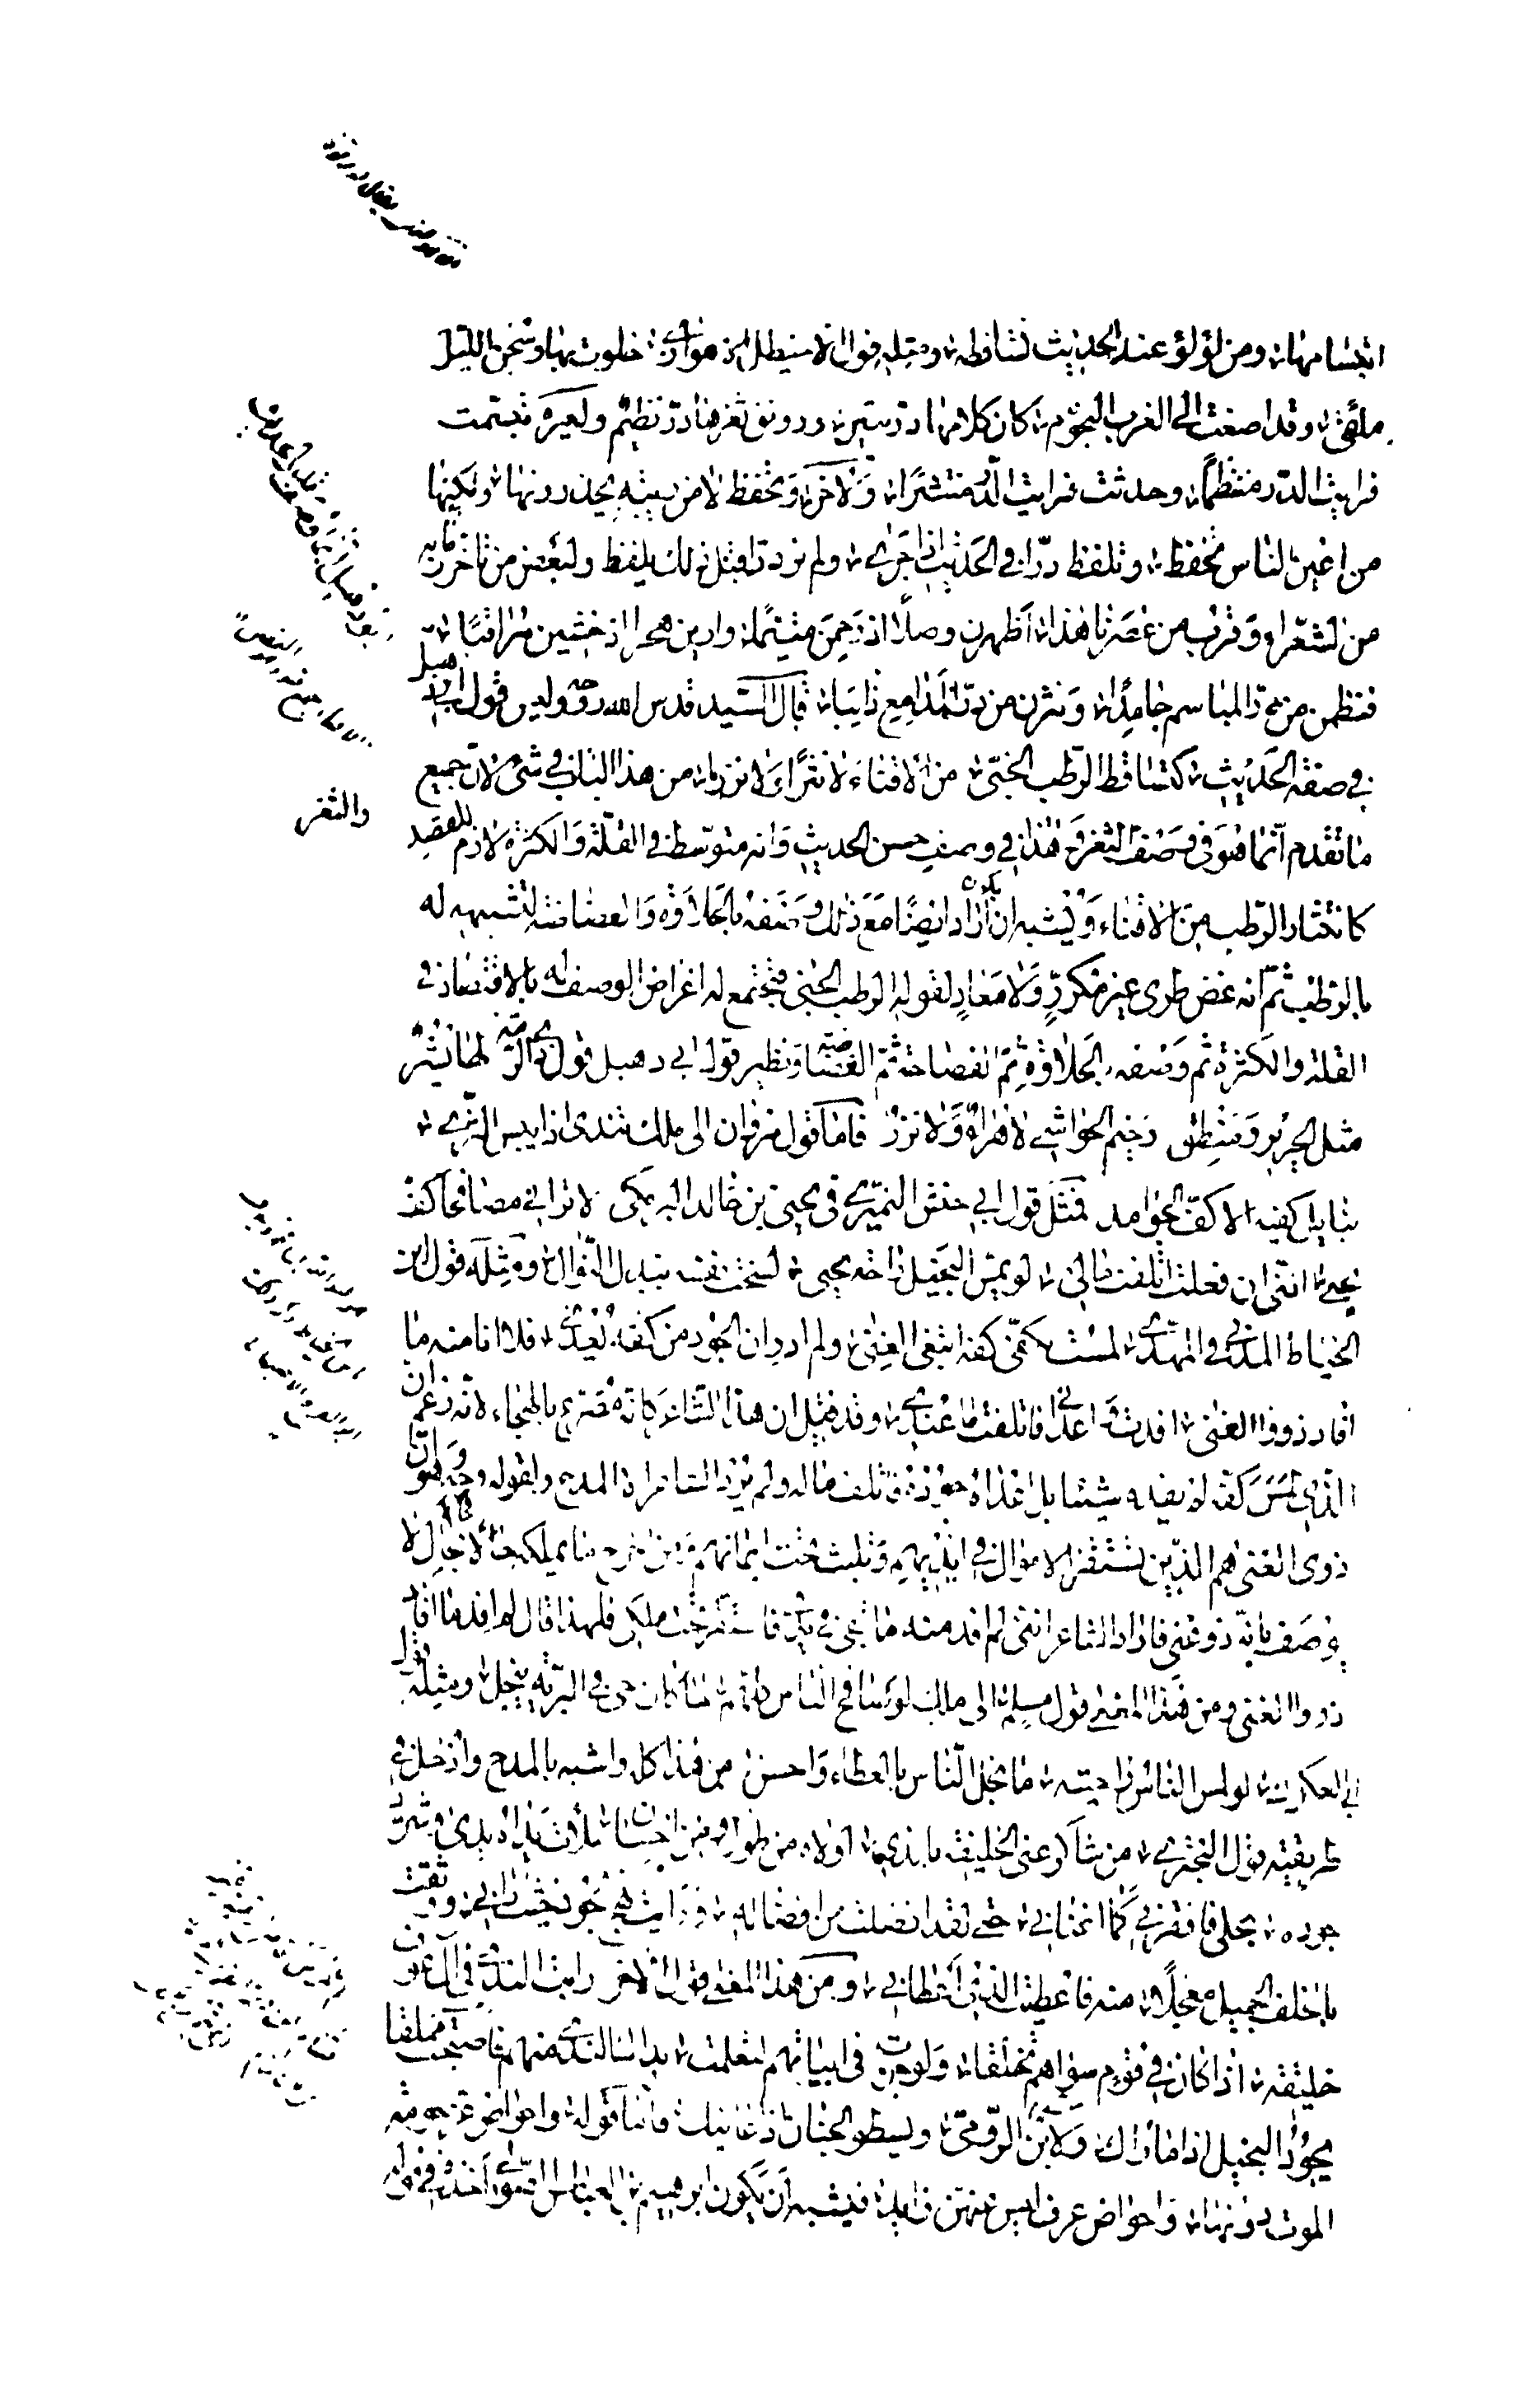 ابتسامها ومن لؤلؤ عند الحديث تساقطه ومثله قول الاخيطل خلوت بها وسجف الليل
ملقى وقد اصغت الى الغرب النجوم كان كلامها در نثير ورونق ثغرها در نظيم ولغيره تبسمت
فرايت الدر منتظما وحدثت فرايت الدر منتثرا ولآخر وتحفظ لا من ريبة يحذرونها ولكنها
من اعين الناس تحفظ وتلفظ درا في الحديث اذا جرى ولم نر درا قبل ذلك يلفظ ولبعض من تاخر زمانه
من الشعراء وقرب من عصرنا هذا اظهرن وصلا اذ رحمن متيما وارين هجرا اذ خشين مراقبا
فنظمن من در المباسم جامدا ونثرن من در المدامع ذايبا قال السيد قدس الله روحه وليس قول ابي دهبل
في صفة الحديث كتساقط الرطب الجني من الاقناء لا نثرا ولا نزرا من هذا الباب في شئ لان جميع
ما تقدم انما هو في وصف الثغر وهذا في وصف حسن الحديث وانه متوسط في القلة والكثرة لازم للقصد
كانتثار الرطب من الاقناء ويشبه ان يكون اراد ايضا مع ذلك وصفه بالحلاوة والغضاضة لتشبيهه له
بالرطب ثم انه غض طري غير مكرر ولا معاد لقوله الرطب الجني فتجتمع له اغراض الوصف له بالاقتصاد في
القلة والكثرة ثم وصفه بالحلاوة ثم الفصاحة ثم الغضاضة ونظير قول ابي دهبل قول ذي الرمة لها بشر
مثل الحرير ومنطق رخيم الحواشي لا هراء ولا نزر فاما قول مروان الى ملك تندى اذا يبس الثرى
بنايل كفيه الاكف الجوامد فمثل قول ابي حنش النميري في يحيى بن خالد البرمكي لا تراني مصافحا كف
يحيى انني ان فعلت اتلفت مالي لو يمس البخيل راحة يحيى لسخت نفسه ببذل النوال ومثله قول ابن
الخياط المدني في المهدي لمست بكفي كفه ابتغى الغنى ولم ادر ان الجود من كفه يعدي فلا انا منه ما
افاد ذووا الغنى افدت واعداني فاتلفت ما عندي وقد قيل ان هذا الشاعر كانه مصرح بالهجاء لانه زعم ان
الذي لمس كفه لم يفده شيئا بل اعداه جوده فاتلف ماله ولم يرد الشاعر الا المدح ولقوله وجه وهو ان
ذوى الغنى هم الذين تستقر الاموال في ايديهم وتلبث تحت ايمانهم ومن اخرج ما يملكه حالا بحال لا
يوصف بانه ذو غنى فاراد الشاعر انني لم افد منه ما بقي في يدي واستقر تحت ملكي فلهذا قال لم افد ما افاد
ذووا الغنى ومن هذا المعنى قول مسلم الى ملك لو صافح الناس كلهم لما كان حي في البرية يبخل ومثله قول
ابي العكوك لو لمس الناس راحتيه ما بخل الناس بالعطاء واحسن من هذا كله واشبه بالمدح وادخل في
طريقته قول البحتري من شاكر عني الخليفة بالذي اولاه من طول ومن احسان ملأت يداه يدي وشرد
جوده بخلي فافقرني كما اغناني حتى لقد افضلت من افضاله ورايت نهج الجود حيث اراني ووثقت
بالخلف الجميل معجلا منه فاعطيت الذي اعطاني ومن هذا المعنى قول الآخر رايت الندى في آل عوف
خليقة اذا كان في قوم سواهم تخلقا ولو جزت في ابياتهم لتعلمت يداك الندى منهم فاصبحت مملقا
يجود البخيل اذا ما راك ولابن الرومي ويسطو الجبان اذا عاينك واما قوله واحواض عز حومة
الموت دونها واحواض عرف ليس عنهن ذايد فيشبه ان يكون ابرهيم بن العباس الصولي اخذه في قوله
والثغر